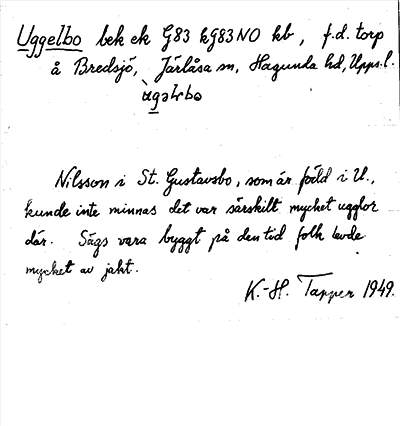 Uggelbo bek ek G83 kG83NO kb, f.d. torp
å Bredsjö, Järlåsa sn, Hagunda hd, Upps.l.
ùgəLbo
Nilsson i St. Gustavsbo, som är född i U.,
kunde inte minnas det var särskilt mycket ugglor
där. Sägs vara byggt på den tid folk levde
mycket av jakt.
K.-H. Tapper 1949.